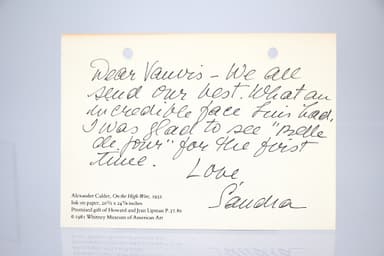 Dear – We all
send our best. What an
incredible face Luis had.
I was glad to see "Belle
de Jour" for the first
time.
Love,
Sandra
Alexander Calder, On the High Wire, 1932
Ink on paper, inches
Promised gift of Howard and Jean Lipman
© 1981 Whitney Museum of American Art